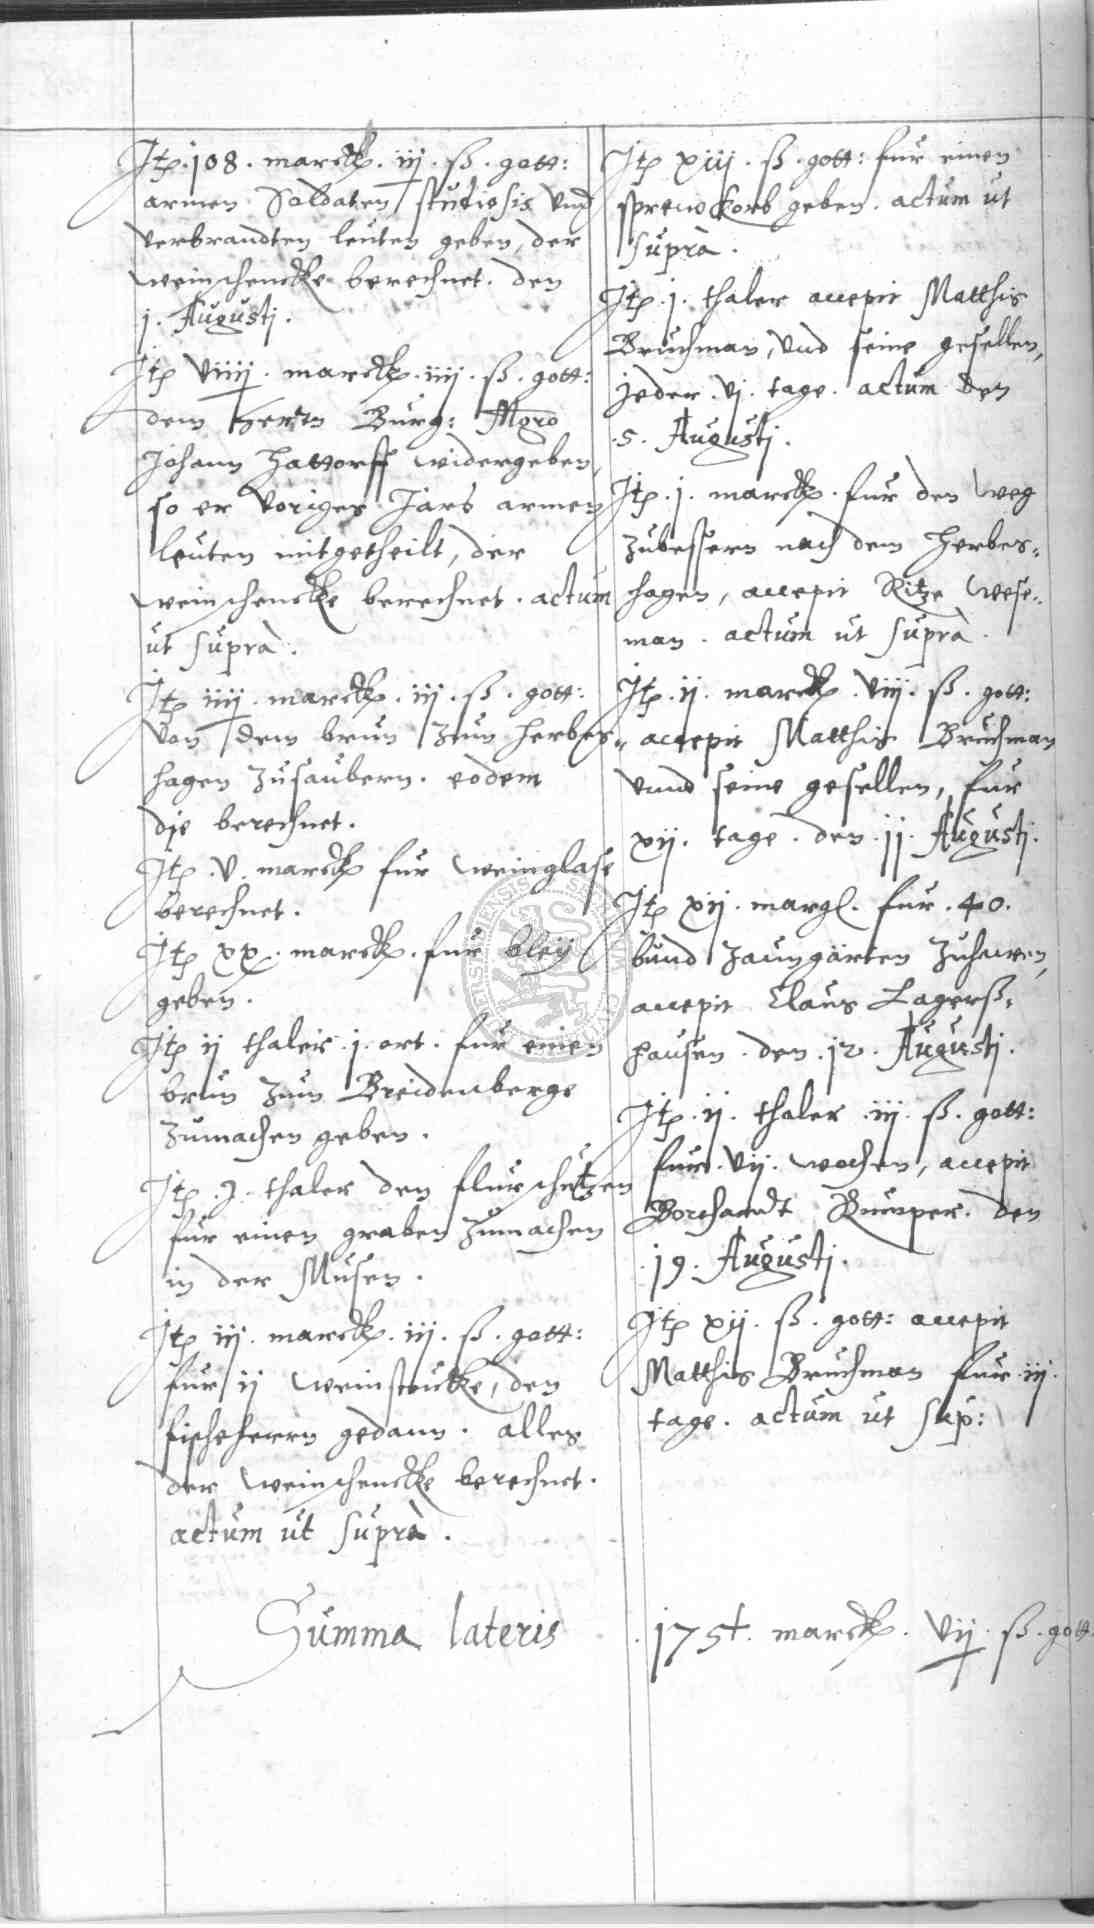 Itp. 108. marckk. iij. ß. gott:
armen Soldaten studiosis vnd
verbrandten leuten geben, der
weinschencke berechnet. den
j. Augustj.
Itp viiij. marckk. iiij. ß. gott:
dem herrn Burg: Mgro
Johann Hattorff widergeben,
so er voriges Jars armen
leuten mitgetheilt, der
weinschencke berechnet. actum
ut suprà.
Itp iiij. marckk. iij. ß. gott:
von dem brun zum herbes=
hagen zusaubern. eodem
die berechnet.
Itp. v. marckk fur weinglase
berechnet.
Itp xx. marckk. fur bleij
geben.
Itp ij thaler. j. ort. fur einen
brun zum Breidenberge
zumachen geben.
Itp. j. thaler den flurschutzen
fur einen graben zumachen
in der Musen.
Itp iij. marckk. iij. ß. gott:
fur ij weinstucke, den
fischeherrn gedann. alles
der weinschencke berechnet.
actum ut suprà.
Itp xiij. ß. gott: fur einen
korb geben. actum ut
suprà.
Itp. j. thaler accepit Matthis
Bruchman, vnd seine gesellen,
jeder. vj. tage. actum den
.5. Augustj.
Itp. j. marckk. fur den weg
zubessern nach dem Herbes=
hagen, accepit Ritze Wese=
man. actum ut suprà.
Itp. ij. marckk. viij. ß. gott:
accepit Matthis Bruchman
vnnd seine gesellen, fur
xij. tage. den. jj. Augustj.
Itp xij. margl. fur. 40.
bund zaungärten zuhawen,
accepit Claus Lagerß=
hausen. den. 12. Augustj.
Itp. ij. thaler. iij. ß. gott:
fur. vij. wochen, accepit
Borchardt Kumper. den
.19. Augustj.
Itp xij. ß. gott: accepit
Matthis Bruchman fur. iij.
tage. actum ut sup:
Summa lateris .175½. marckk. vij. ß. gott.